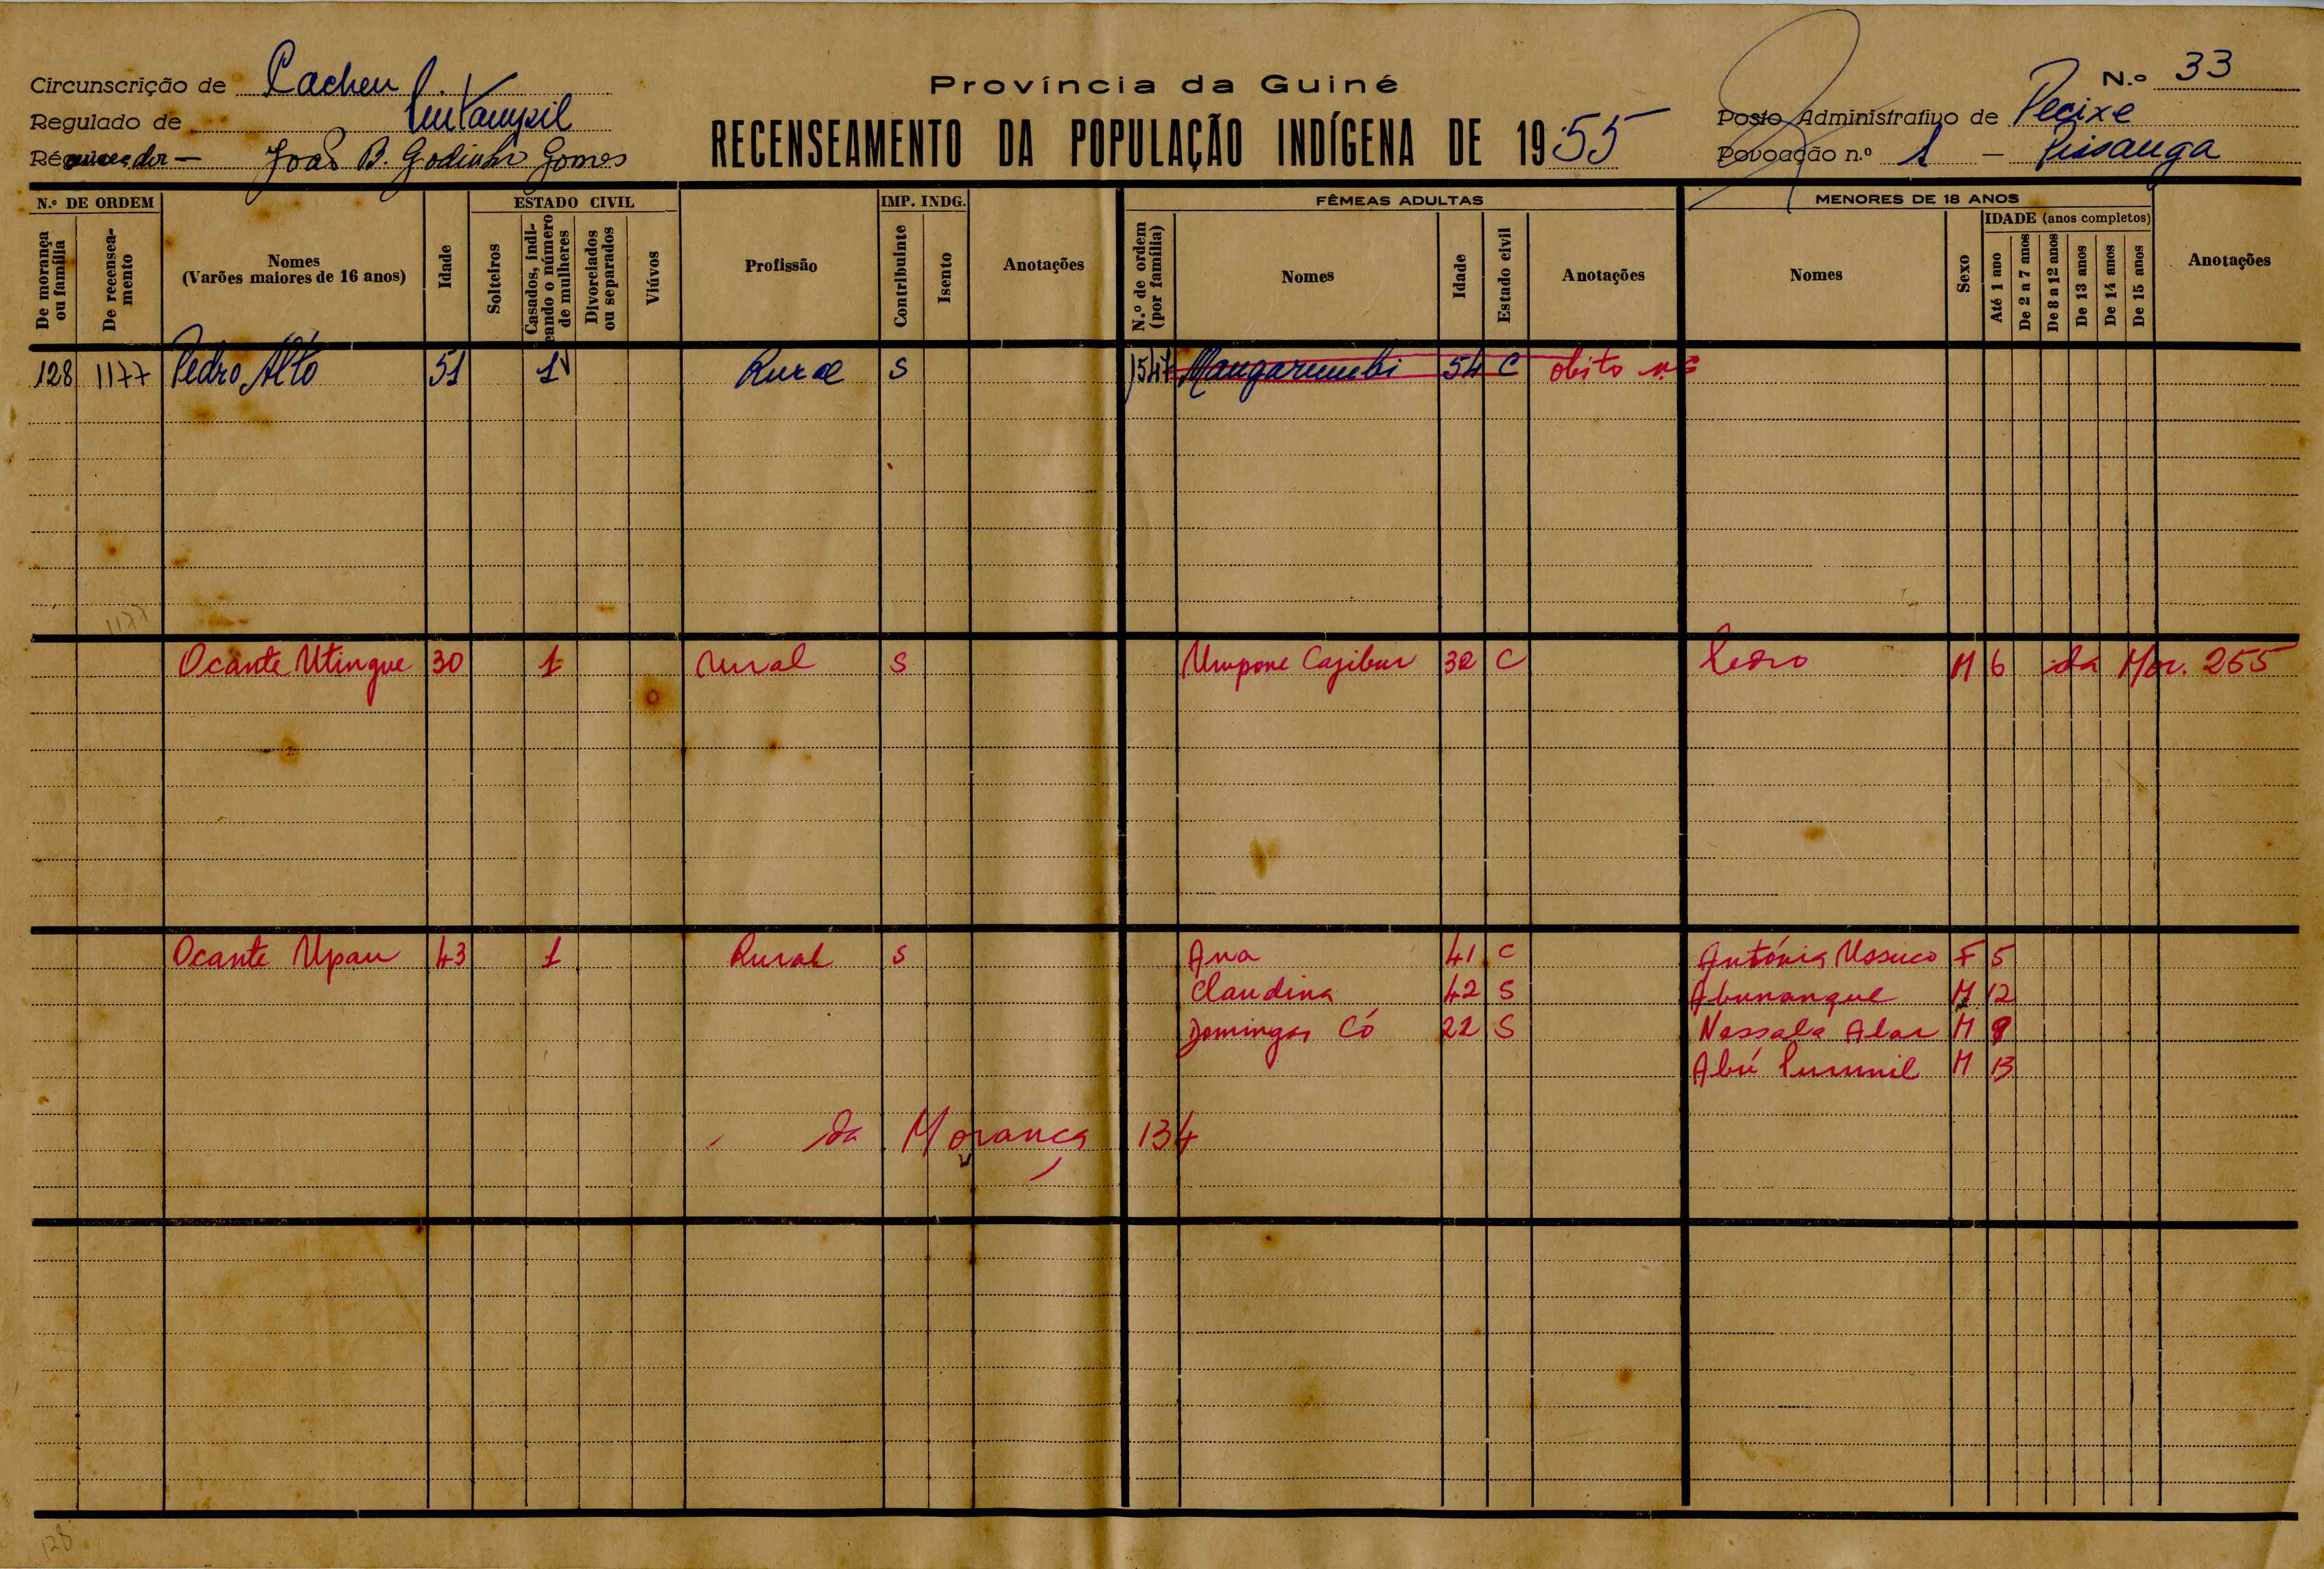 Circunscrição de Cacheu
Província da Guiné
N.º 33
Regulado de
Posto Administrativo de Pecixe
RECENSEAMENTO DA POPULAÇÃO INDÍGENA DE 1955
João B. Godinho Gomes
Povoação n.º 1 — Pissanga
N.º DE ORDEM
De morança ou família
De recenseamento
Nomes
(Varões maiores de 16 anos)
Idade
ESTADO CIVIL
Solteiros
Casados, indicando o número de mulheres
Divorciados ou separados
Viúvos
Profissão
IMP. INDG.
Contribuinte
Isento
Anotações
FÊMEAS ADULTAS
N.º de ordem (por família)
Nomes
Idade
Estado civil
Anotações
MENORES DE 18 ANOS
Nomes
Sexo
IDADE (anos completos)
Até 1 ano
De 2 a 7 anos
De 8 a 12 anos
De 13 anos
De 14 anos
De 15 anos
Anotações
128 1177 Pedro Alto 51 1 Rural S 1547 Mangarumbi 54 C obito
1177
Ocante Utingue 30 1 rural S Umpone Cajibur 32 C Pedro M 6 da Mor. 255
Ocante Upau 43 1 Rural S Ana 41 C António Ussuco F 5
Claudina 42 S Abunanque M 12
Domingas Có 22 S Nassala Alar M 9
Abú M 13
da Morança 134
128